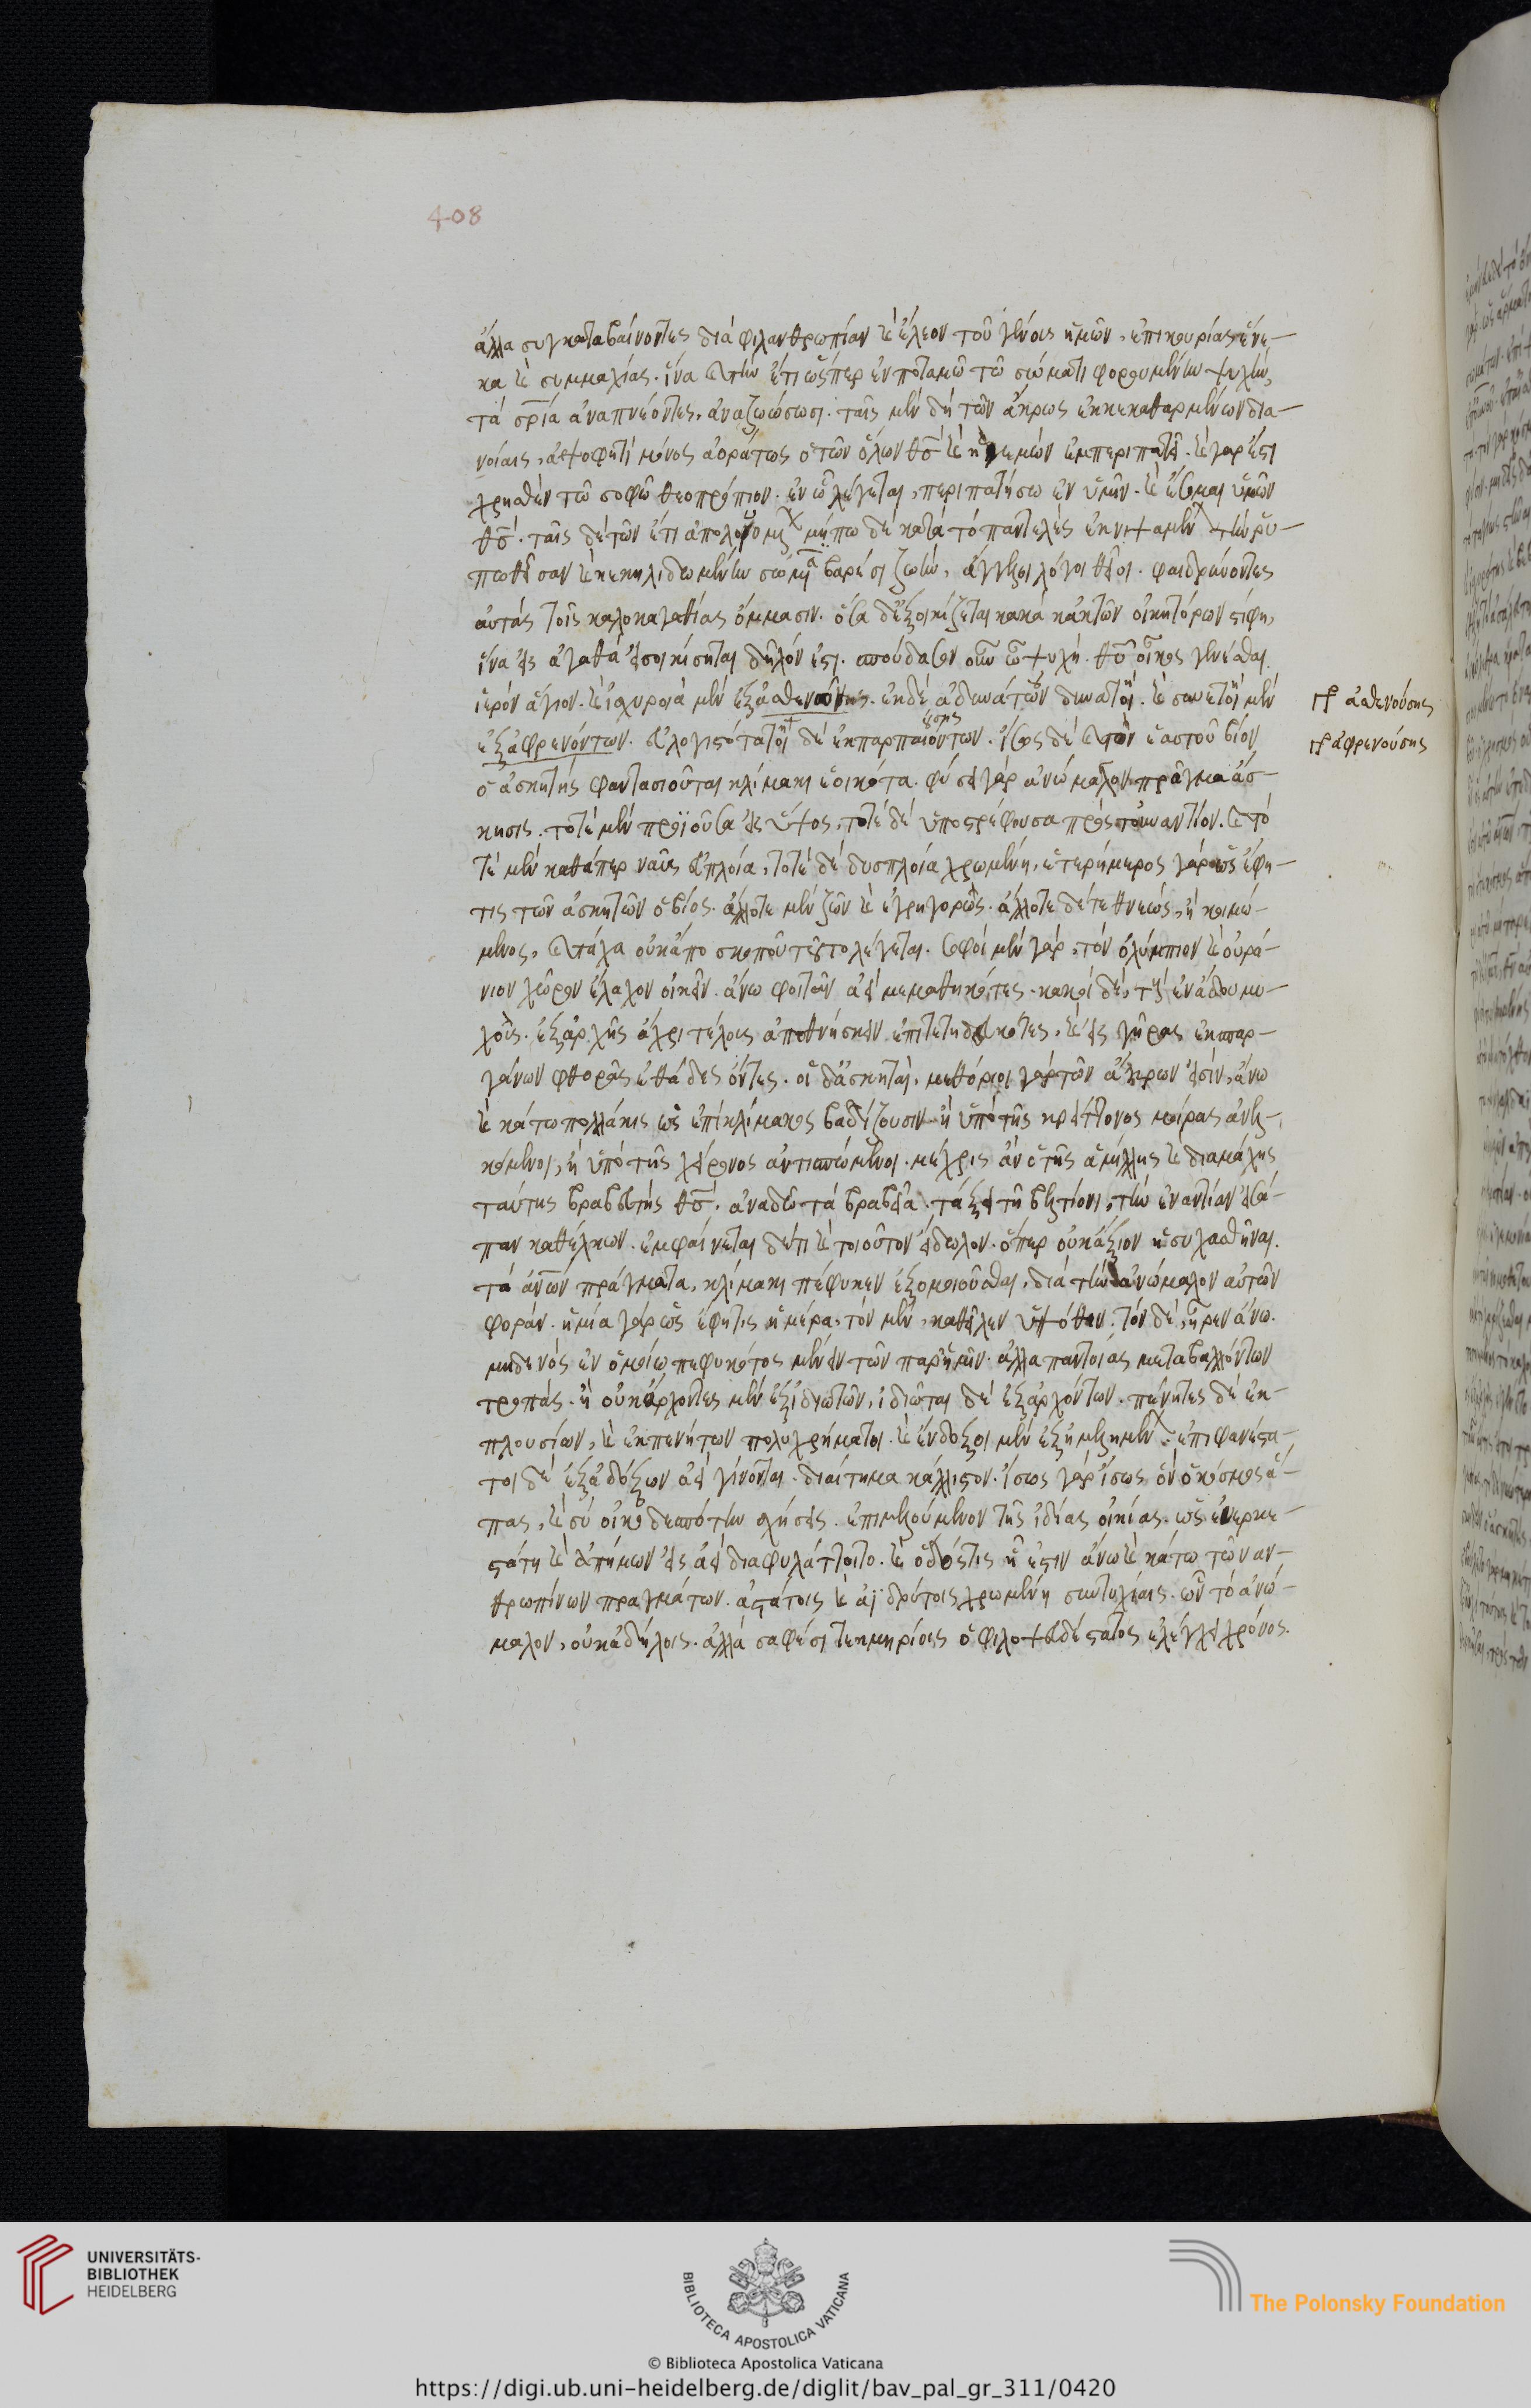 408
ἀλλα συγκαταβαίνοντες διὰ φιλανθρωπίαν καὶ ἔλεον τοῦ γένους ἡμῶν. ἐπικουρίας ἕνε-
κα καὶ συμμαχίας. ἵνα καὶ τὴν ἔτι ὥσπερ ἐν ποταμῷ τῷ σώματι φορουμένην ψυχὴν,
τὰ σρία ἀναπνέοντες, ἀναζωώσωσι. ταῖς μὲν δὴ τῶν ἄκρως ἐκκεκαθαρμένων δια-
νοίαις, ἀψοφητὶ μόνος ἀοράτως ὁ τῶν ὅλων θς καὶ ἡγεμὼν ἐμπεριπατεῖ. καὶ γάρ ἐστι
χρησθὲν τῷ σοφῷ θεοπρόπιον. ἐν ᾧ λέγεται, περιπατήσω ἐν ὑμῖν. καὶ ἔσομαι ὑμῶν
θς. ταῖς δὲ τῶν ἔτι μήπω δὲ κατὰ τὸ παντελὲς ἐκνιψαμέν τὴν ῥυ-
καὶ κεκηλιδωμένην βαρέσι ζωὴν, ἄγγελοι λόγοι θεῖοι. φαιδρύνοντες
αὐτὰς τοῖς καλοκαγαθίας ὄμμασιν. ὅσα δ' ἐξοικίζεται κακὰ κἀκ τῶν οἰκητόρων στίφη,
ἵνα εἰς ἀγαθὰ εἰσοικίσηται δῆλόν ἐστι. σπούδασον οὖν ὦ ψυχὴ. θῦ οἶκος γενέσθαι.
ἱερὸν ἅγιον. καὶ ἰσχυροτὰ μὲν ἐξ ἀσθενούσης. ἐκ δὲ ἀδυνάτων δυνατὴ. καὶ συνετὴ μὲν
ἐξ ἀφρενόντων. εὐλογιστότατοι δὲ ἐκ παρπαιόντων. ἴσως δὲ καὶ τὸν ἑαυτοῦ βίον
ὁ ἀσκητὴς φαντασιοῦται κλίμακι ἐοικότα. φύσει γὰρ ἀνώμαλον πρᾶγμα ἄσ-
κησις. τοτὲ μὲν προϊοῦσα εἰς ὕψος, τοτὲ δὲ ὑποστρέφουσα πρὸς τοὐναντίον. καὶ το
τὲ μὲν καθάπερ ναῦς εὐπλοία, τοτὲ δὲ δυσπλοία χρωμένη, ἑτερήμερος γὰρ ὡς ἔφη-
τις τῶν ἀσκητῶν ὁ βίος. ἄλλοτε μὲν ζῶν καὶ ἐγρηγορὼς. ἄλλοτε δὲ τεθνεὼς, ἢ κοιμώ-
μενος, καὶ τάχα οὐκ ἄπο σκοποῦ τοῦτο λέγεται. σοφοὶ μὲν γὰρ, τὸν ὀλύμπιον καὶ οὐρά-
νιον χῶρον ἔλαχον οἰκεῖν. ἄνω φοιτᾶν ἀεὶ μεμαθηκότες. κακοὶ δὲ, τοὺς ἐν ᾅδου μυ-
χοὺς. ἐξ ἀρχῆς ἄχρι τέλους ἀποθνήσκειν ἐπιτετηδευκότες, καὶ εἰς γῆρας ἐκ σπαρ-
γάνων φθορᾶς ἐθάδες ὄντες. οἱ δ' ἀσκηταὶ, μεθόριοι γὰρ τῶν ἄκρων εἰσὶν, ἄνω
καὶ κάτω πολλάκις ὡς ἐπὶ κλίμακος βαδίζουσιν ἢ ὑπὸ τῆς κρείττονος μοίρας ἀνελ-
κόμενοι, ἢ ὑπὸ τῆς χείρονος ἀντισπώμενοι. μέχρις ἂν ὁ τῆς ἁμίλλης καὶ διαμάχης
ταύτης βραβευτὴς θς. ἀναδῷ τὰ βραβεῖα τάξει τῇ βελτίονι, τὴν ἐναντίαν εἰσά-
παν καθέλκων. ἐμφαίνεται δ' ἔτι καὶ τοιοῦτον εἴδωλον. ὅπερ οὐκ ἄξιον ἡσυχασθῆναι.
τὰ ἀνων πράγματα, κλίμακι πέφυκεν ἐξομοιοῦσθαι, διὰ τὴν ἀνώμαλον αὐτῶν
φορὰν. ἡ μία γὰρ ὡς ἔφη τις ἡμέρα, τὸν μὲν, καθεῖλεν ὑψόθεν. τὸν δὲ, ἦρεν ἄνω.
μηδενὸς ἐν ὁμοίῳ πεφυκότος μένειν τῶν παρ' ἡμῖν. ἀλλα παντοίας μεταβαλλόντων
τροπάς. ἢ οὐκ ἄρχοντες μὲν ἐξ ἰδιωτῶν, ἰδιῶται δὲ ἐξ ἀρχόντων. πένητες δὲ ἐκ-
πλουσίων, καὶ ἐκ πενήτων πολυχρήματοι. καὶ ἔνδοξοι μὲν ἐξ ἠμελημέν. ἐπιφανέστα-
τοι δὲ ἐξ ἀδόξων ἀεὶ γίνονται. διαίτημα κάλλιστον. ἴσως γὰρ ἴσως ὁ κόσμος ἅ-
πας, καὶ σὺ οἰκοδεσπότην σχήσεις. ἐπιμελούμενον τῆς ἰδίας οἰκίας. ὡς εὐερκε-
στάτη καὶ ἀπήμων εἰς ἀεὶ διαφυλάττοιτο. καὶ ὁδὸς τις ἥ ἐστιν ἄνω καὶ κάτω τῶν αν-
θρωπίνων πραγμάτων. ἀστάτοις καὶ ἀϊδρύτοις χρωμένη συντυχίαις. ὧν τὸ ἀνώ-
μαλον, οὐκ ἀδήλοις. ἀλλὰ σαφέσι τεκμηρίοις ὁ φιλοψευδέστατος ἐλέγχει χρόνος.
γρ ἀσθενούσης
γρ ἀφρενούσης
UNIVERSITÄTS-
BIBLIOTHEK
HEIDELBERG
BIBLIOTECA APOSTOLICA VATICANA
The Polonsky Foundation
© Biblioteca Apostolica Vaticana
https://digi.ub.uni-heidelberg.de/diglit/bav_pal_gr_311/0420